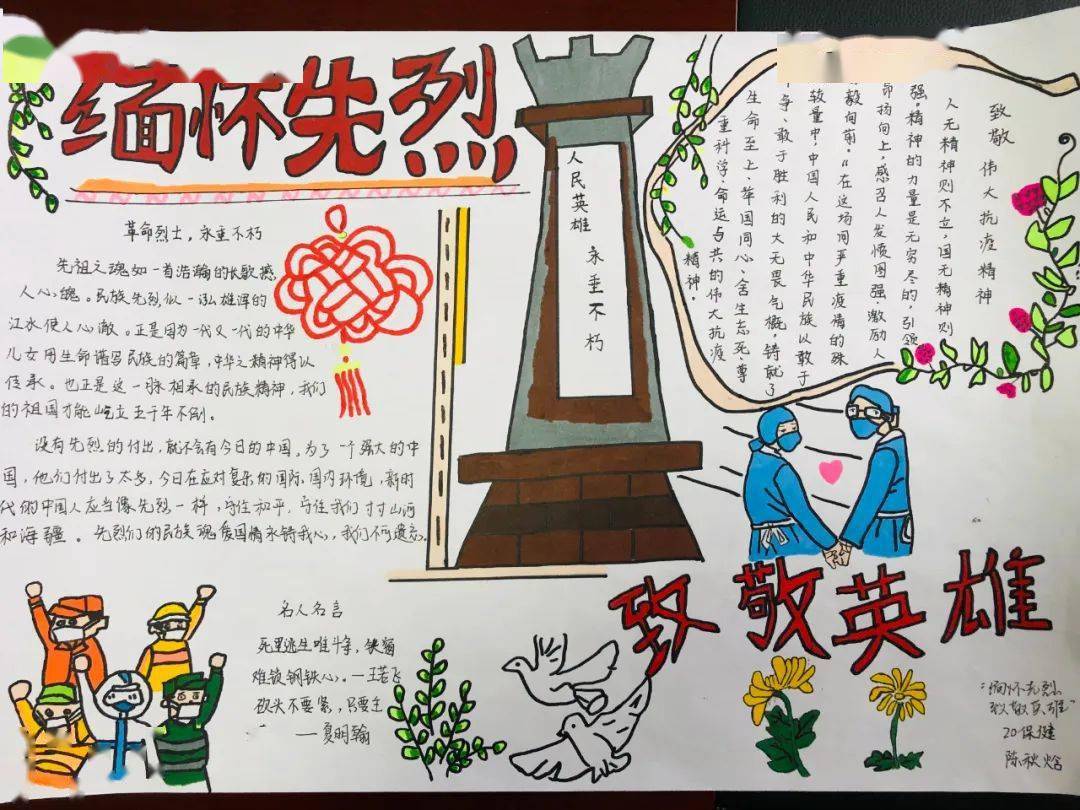 缅怀先烈
革命烈士，永垂不朽
先祖之魂如一首浩瀚的长歌撼
人心魄。民族先烈似一泓雄浑的
江水使人心澈。正是因为一代又一代的中华
儿女用生命谱写民族的篇章，中华之精神得以
传承。也正是这一脉相承的民族精神，我们
的祖国才能屹立五千年不倒。
没有先烈的付出，就不会有今日的中国。为了一个强大的中
国，他们付出了太多，今日在应对复杂的国际、国内环境，新时
代的中国人应当像先烈一样，守住和平，守住我们寸寸山河
和海疆。先烈们的民族魂爱国情永铸我心，我们不可遗忘。
人民英雄
永垂不朽
致敬伟大抗疫精神
人无精神则不立，国无精神则
强。精神的力量是无穷尽的，引领
昂扬向上，感召人发愤图强，激励人
毅向前。“在这场同严重疫情的殊
较量中，中国人民和中华民族以敢于
争、敢于胜利的大无畏气概，铸就了
生命至上、举国同心、舍生忘死、尊
重科学、命运与共的伟大抗疫
精神。
致敬英雄
名人名言
死里逃生唯斗争，铁窗
难锁钢铁心。—王若飞
砍头不要紧，只要主
—夏明翰
“缅怀先烈
致敬英雄”
20保健
陈秧焓